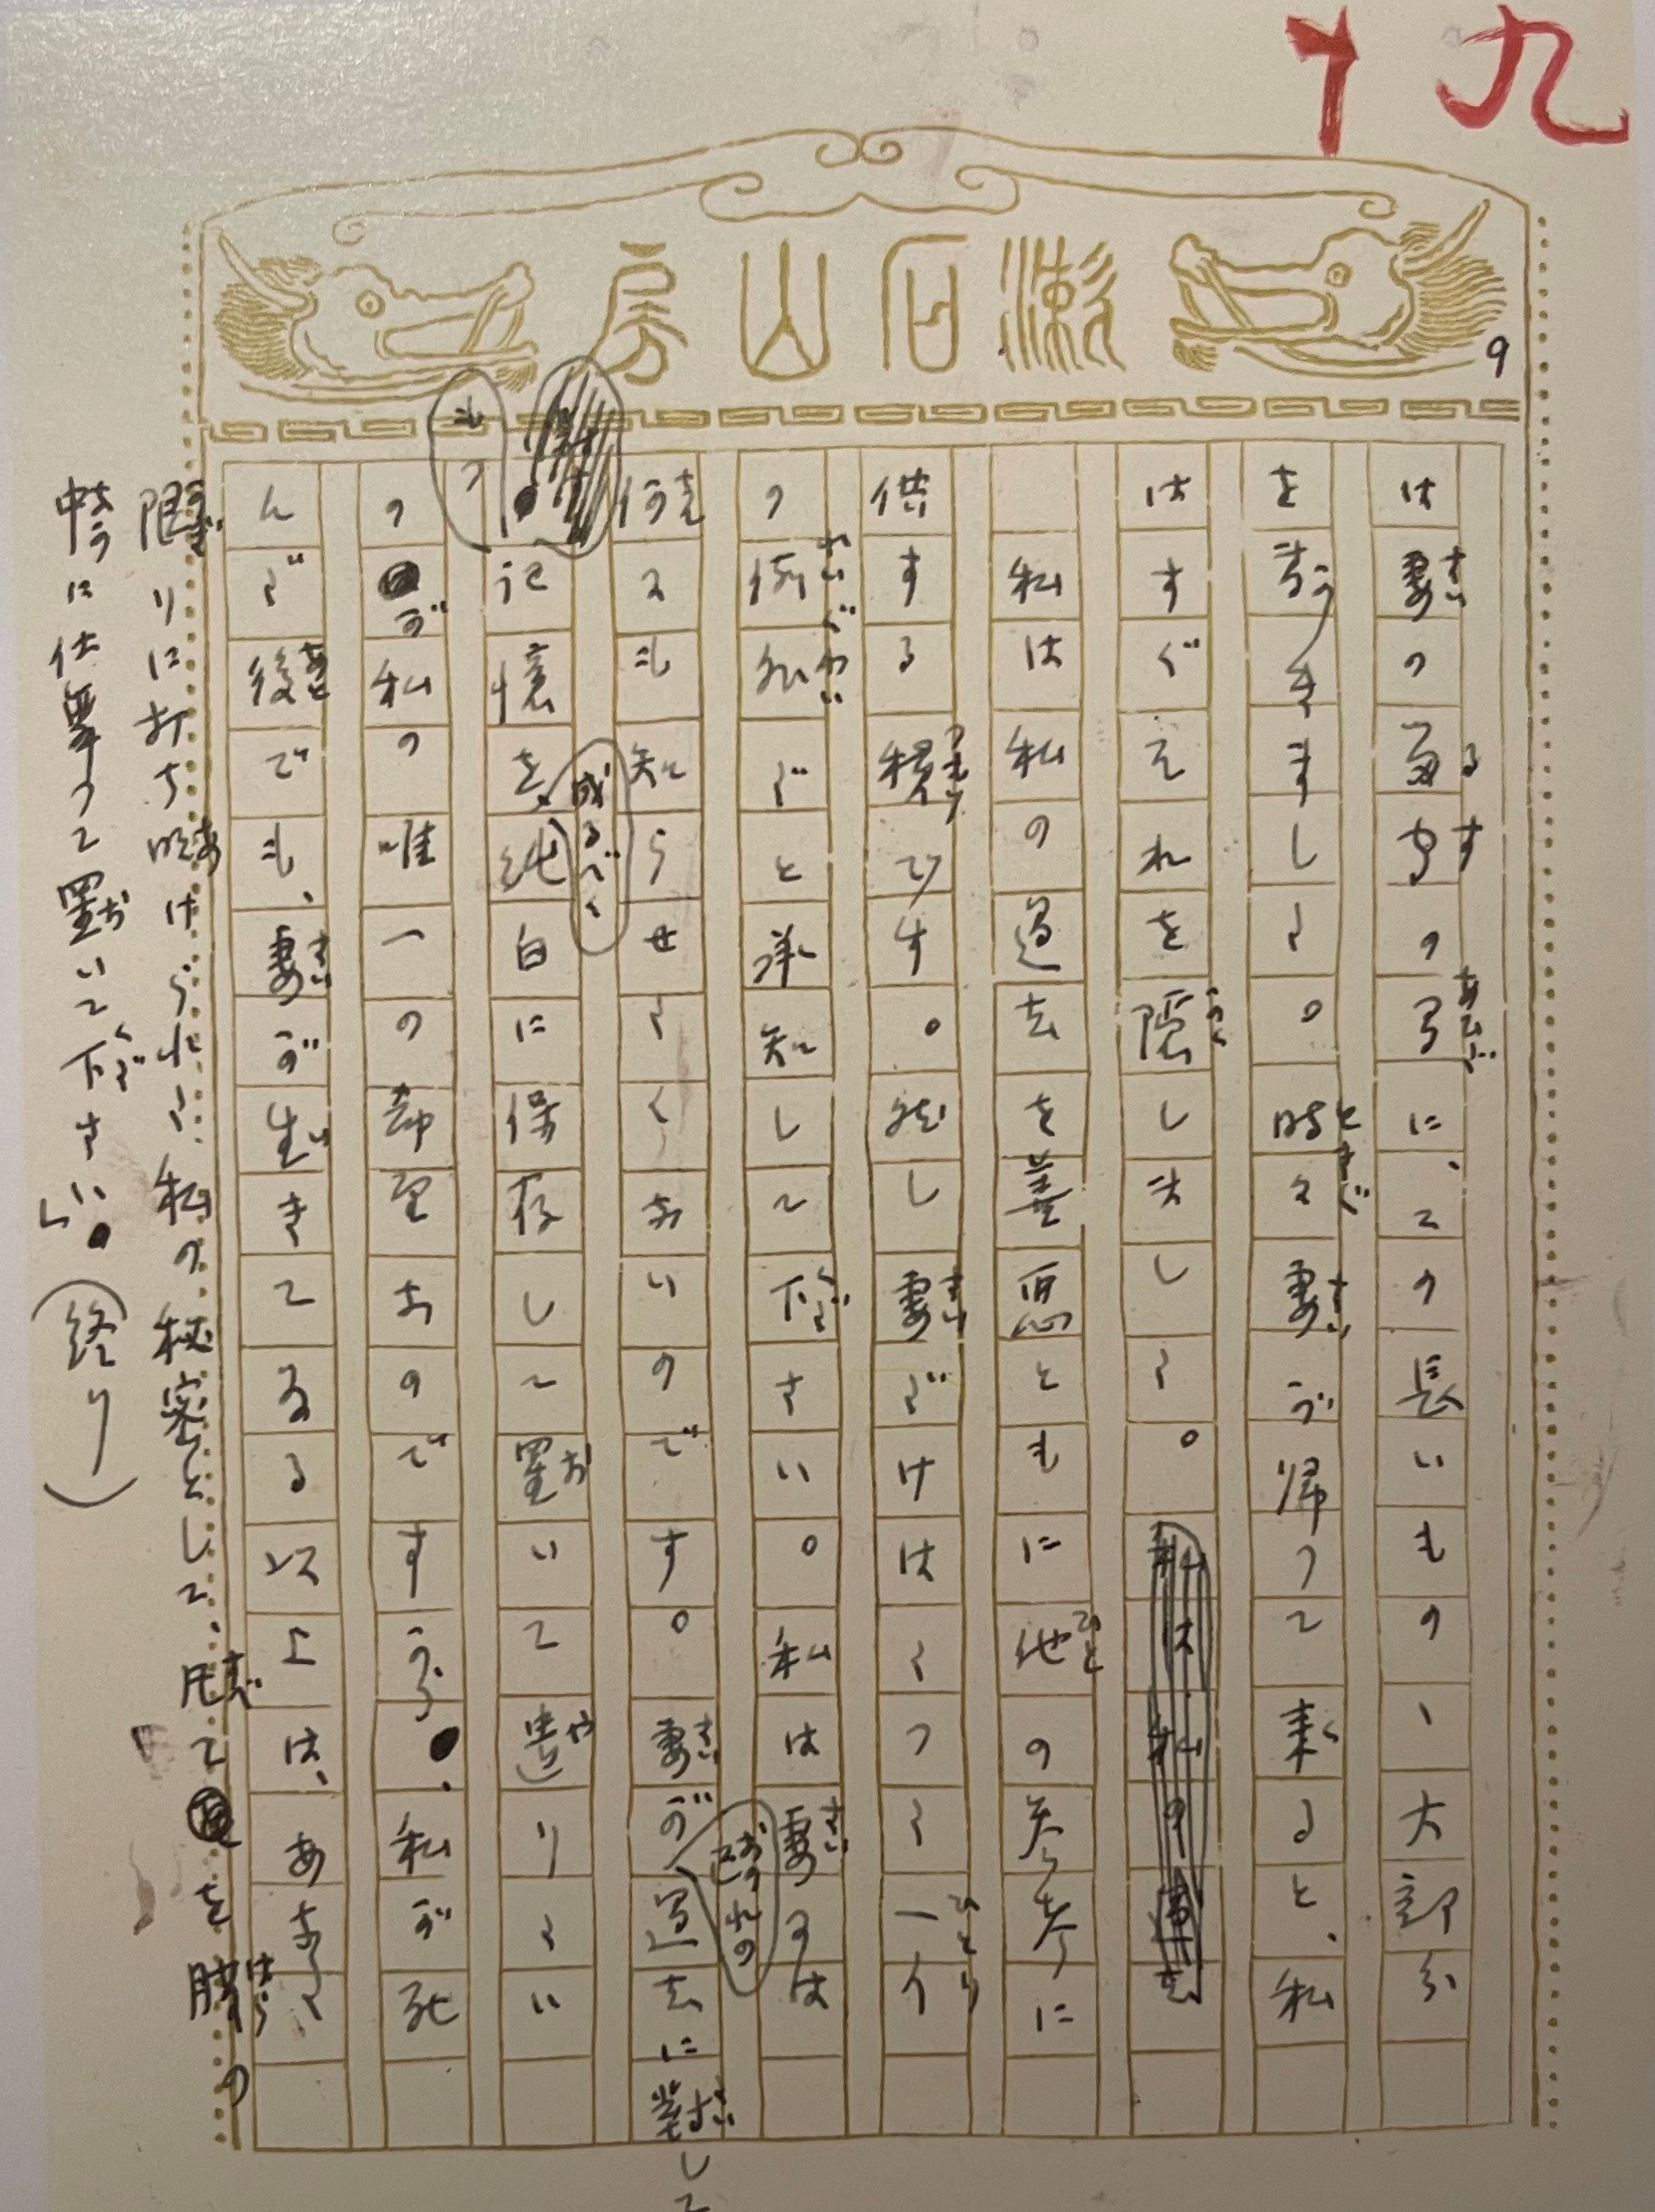 十九
漱石山房
9
は妻の留守の間に、この長いものゝ大部分
を書きました。時々妻が帰つて来ると、私
はすぐそれを隠しました。
私は私の過去を善悪ともに他の参考に
供する積です。然し妻だけはたつた一人
の例外だと承知して下さい。私は妻には
何にも知らせたくないのです。妻が己れの過去に對して
もつ記憶を、成るべく純白に保存して置いて遣りたい
のが私の唯一の希望なのですから、私が死
んだ後でも、妻が生きてゐる以上は、あなた
限りに打ち明けられた私の秘密として、凡てを腹の
中に仕舞つて置いて下さい。(終り)